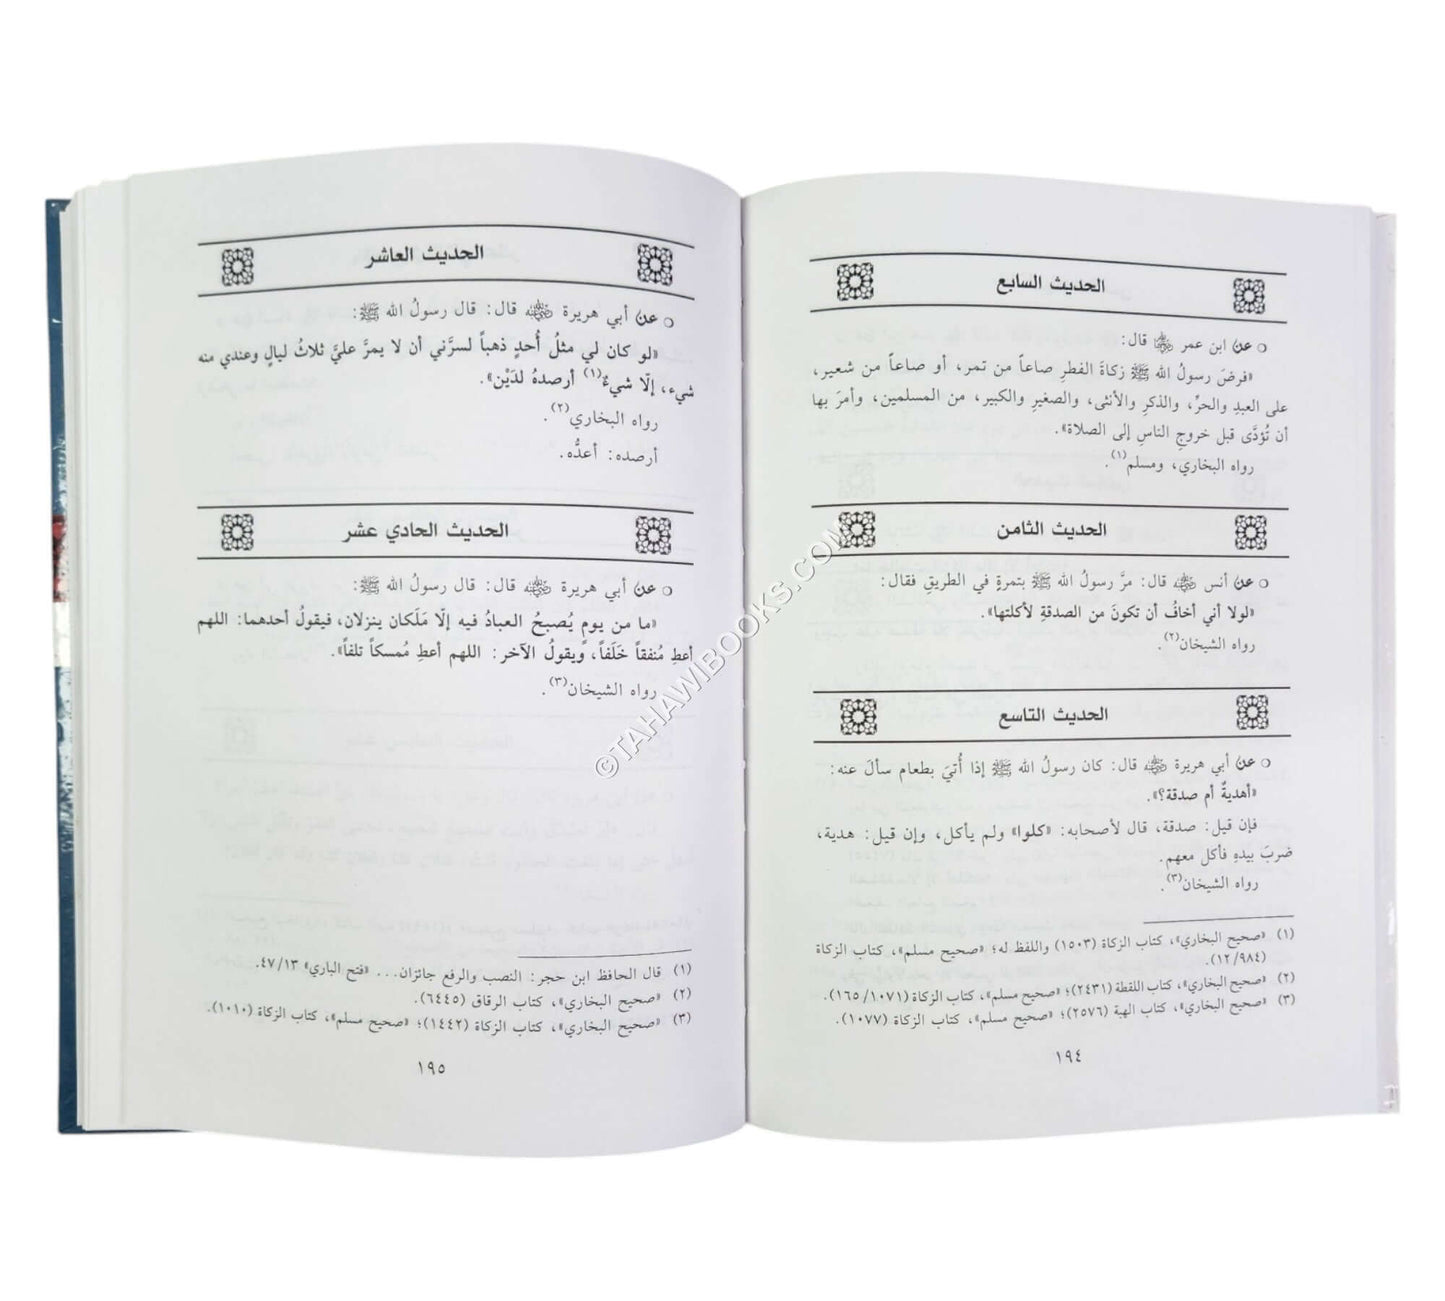 الحديث السابع
○ عن ابن عمر ﵁ قال:
«فرضَ رسولُ الله ﷺ زكاةَ الفطرِ صاعاً من تمر، أو صاعاً من شعير،
على العبدِ والحرِّ، والذكرِ والأنثى، والصغيرِ والكبير، من المسلمين، وأمرَ بها
أن تُؤدَّى قبل خروجِ الناسِ إلى الصلاة».
رواه البخاري، ومسلم(١).
الحديث الثامن
○ عن أنس ﵁ قال: مرَّ رسولُ الله ﷺ بتمرةٍ في الطريقِ فقال:
«لولا أني أخافُ أن تكونَ من الصدقةِ لأكلتها».
رواه الشيخان(٢).
الحديث التاسع
○ عن أبي هريرة ﵁ قال: كان رسولُ الله ﷺ إذا أُتيَ بطعام سألَ عنه:
«أهديةٌ أم صدقة؟».
فإن قيل: صدقة، قال لأصحابه: «كلوا» ولم يأكل، وإن قيل: هدية،
ضربَ بيدهِ فأكل معهم.
رواه الشيخان(٣).
(١) «صحيح البخاري»، كتاب الزكاة (١٥٠٣) واللفظ له؛ «صحيح مسلم»، كتاب الزكاة
(١٢/٩٨٤).
(٢) «صحيح البخاري»، كتاب اللقطة (٢٤٣١)؛ «صحيح مسلم»، كتاب الزكاة (١٦٥/١٠٧١).
(٣) «صحيح البخاري»، كتاب الهبة (٢٥٧٦)؛ «صحيح مسلم»، كتاب الزكاة (١٠٧٧).
١٩٤
الحديث العاشر
○ عن أبي هريرة ﵁ قال: قال رسولُ الله ﷺ:
«لو كان لي مثلُ أُحدٍ ذهباً لسرَّني أن لا يمرَّ عليَّ ثلاثُ ليالٍ وعندي منه
شيء، إلّا شيءٌ(١) أرصدهُ لدَيْن».
رواه البخاري(٢).
أرصده: أعدُّه.
الحديث الحادي عشر
○ عن أبي هريرة ﵁ قال: قال رسولُ الله ﷺ:
«ما من يومٍ يُصبحُ العبادُ فيه إلّا مَلَكان ينزلان، فيقولُ أحدهما: اللهم
أعطِ مُنفقاً خَلَفاً، ويقولُ الآخر: اللهم أعطِ مُمسكاً تلفاً».
رواه الشيخان(٣).
(١) قال الحافظ ابن حجر: النصب والرفع جائزان... «فتح الباري» ٤٧/١٣.
(٢) «صحيح البخاري»، كتاب الرقاق (٦٤٤٥).
(٣) «صحيح البخاري»، كتاب الزكاة (١٤٤٢)؛ «صحيح مسلم»، كتاب الزكاة (١٠١٠).
١٩٥
©TAHAWIBOOKS.COM